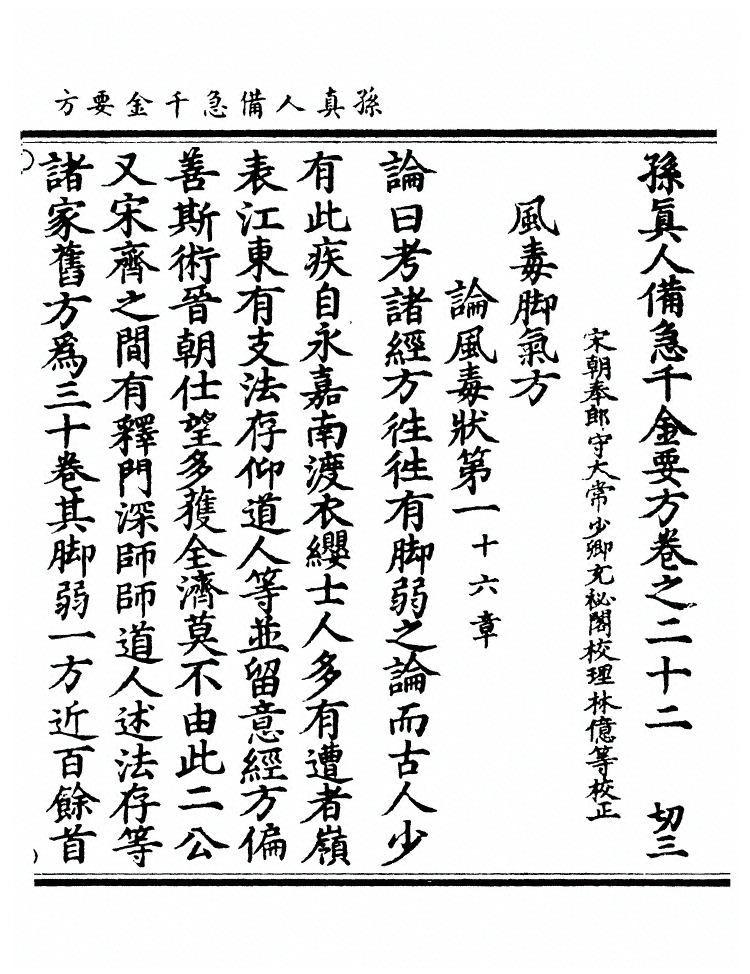 孫真人備急千金要方
孫眞人備急千金要方卷之二十二 切三
宋朝奉郎守大常少卿充祕閣校理林億等校正
風毒脚氣方
論風毒狀第一十六章
論曰考諸經方徃徃有脚弱之論而古人少
有此疾自永嘉南渡衣纓士人多有遭者嶺
表江東有支法存仰道人等並留意經方偏
善斯術晉朝仕望多獲全濟莫不由此二公
又宋齊之間有釋門深師師道人述法存等
諸家舊方爲三十卷其脚弱一方近百餘首